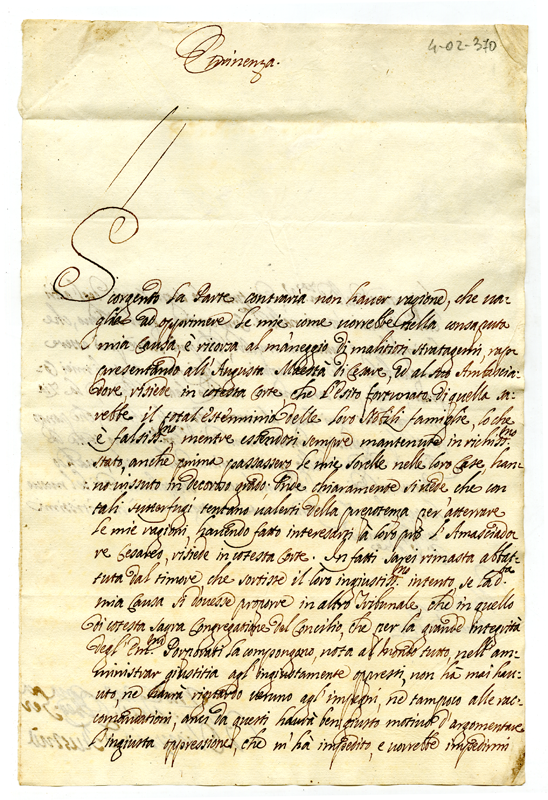 4-02-370
Eminenza.
Scorgendo la Parte contraria non haver ragione, che va-
glia ad opprimere le mie come vorrebbe nella consaputa
mia Causa, è ricorsa al maneggio di malitiosi stratagemi, rap-
presentando all'Augusta Maestà di Cesare, et al suo Ambascia-
dore, risiede in cotesta Corte, che l'esito fortunato di quella sa-
rebbe il total esterminio delle loro Nobili famiglie, lo che
è falsiss.mo mentre essendosi sempre mantenute in richiss.mo
stato, anche prima passassero le mie sorelle nelle loro Case, han-
no vissuto in decoroso grado. Onde chiaramente si vede che con
tali sutterfugi tentano valersi della prepotenza per atterrare
le mie ragioni, havendo fatto interessarsi à loro prò l'Amasciado-
re Cesareo, risiede in cotesta Corte. In fatti sarei rimasta abbat-
tuta dal timore che sortisse il loro ingiustiss.mo intento, se la d.ta
mia Causa si dovesse proporre in altro Tribunale, che in quello
di cotesta Sagra Congregatione del Concilio, che per la grande integrità
degl'Em.mi Porporati la compongono, nota al mondo tutto, nell'am-
ministrar giustitia agl'ingiustamente oppressi, non hà mai hau-
uto, ne haurà riguardo veruno agl'impegni, ne tampoco alle rac-
comandationi, anzi da questi haurà ben giusto motivo d'argomentare
l'ingiusta oppressione, che m'hà impedito, e vorrebbe impedirmi